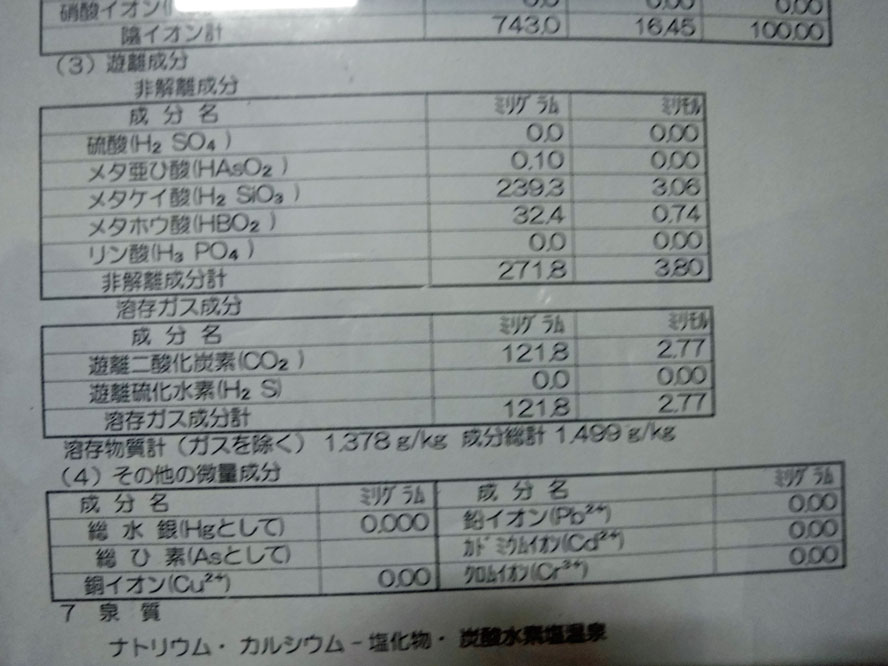 硝酸イオン( 0.0 0.00 0.00
陰イオン計 743.0 16.45 100.00
(3) 遊離成分
非解離成分
成 分 名 ミリグラム ミリモル
硫酸(H₂ SO₄) 0.0 0.00
メタ亜ひ酸(HAsO₂) 0.10 0.00
メタケイ酸(H₂ SiO₃) 239.3 3.06
メタホウ酸(HBO₂) 32.4 0.74
リン酸(H₃ PO₄) 0.0 0.00
非解離成分計 271.8 3.80
溶存ガス成分
成 分 名 ミリグラム ミリモル
遊離二酸化炭素(CO₂) 121.8 2.77
遊離硫化水素(H₂ S) 0.0 0.00
溶存ガス成分計 121.8 2.77
溶存物質計(ガスを除く) 1.378 g/kg 成分総計 1.499 g/kg
(4) その他の微量成分
成 分 名 ミリグラム 成 分 名 ミリグラム
総 水 銀(Hgとして) 0.000 鉛イオン(Pb²⁺) 0.00
総 ひ 素(Asとして) カドミウムイオン(Cd²⁺) 0.00
銅イオン(Cu²⁺) 0.00 クロムイオン(Cr³⁺) 0.00
7 泉 質
ナトリウム・カルシウム-塩化物・炭酸水素塩温泉